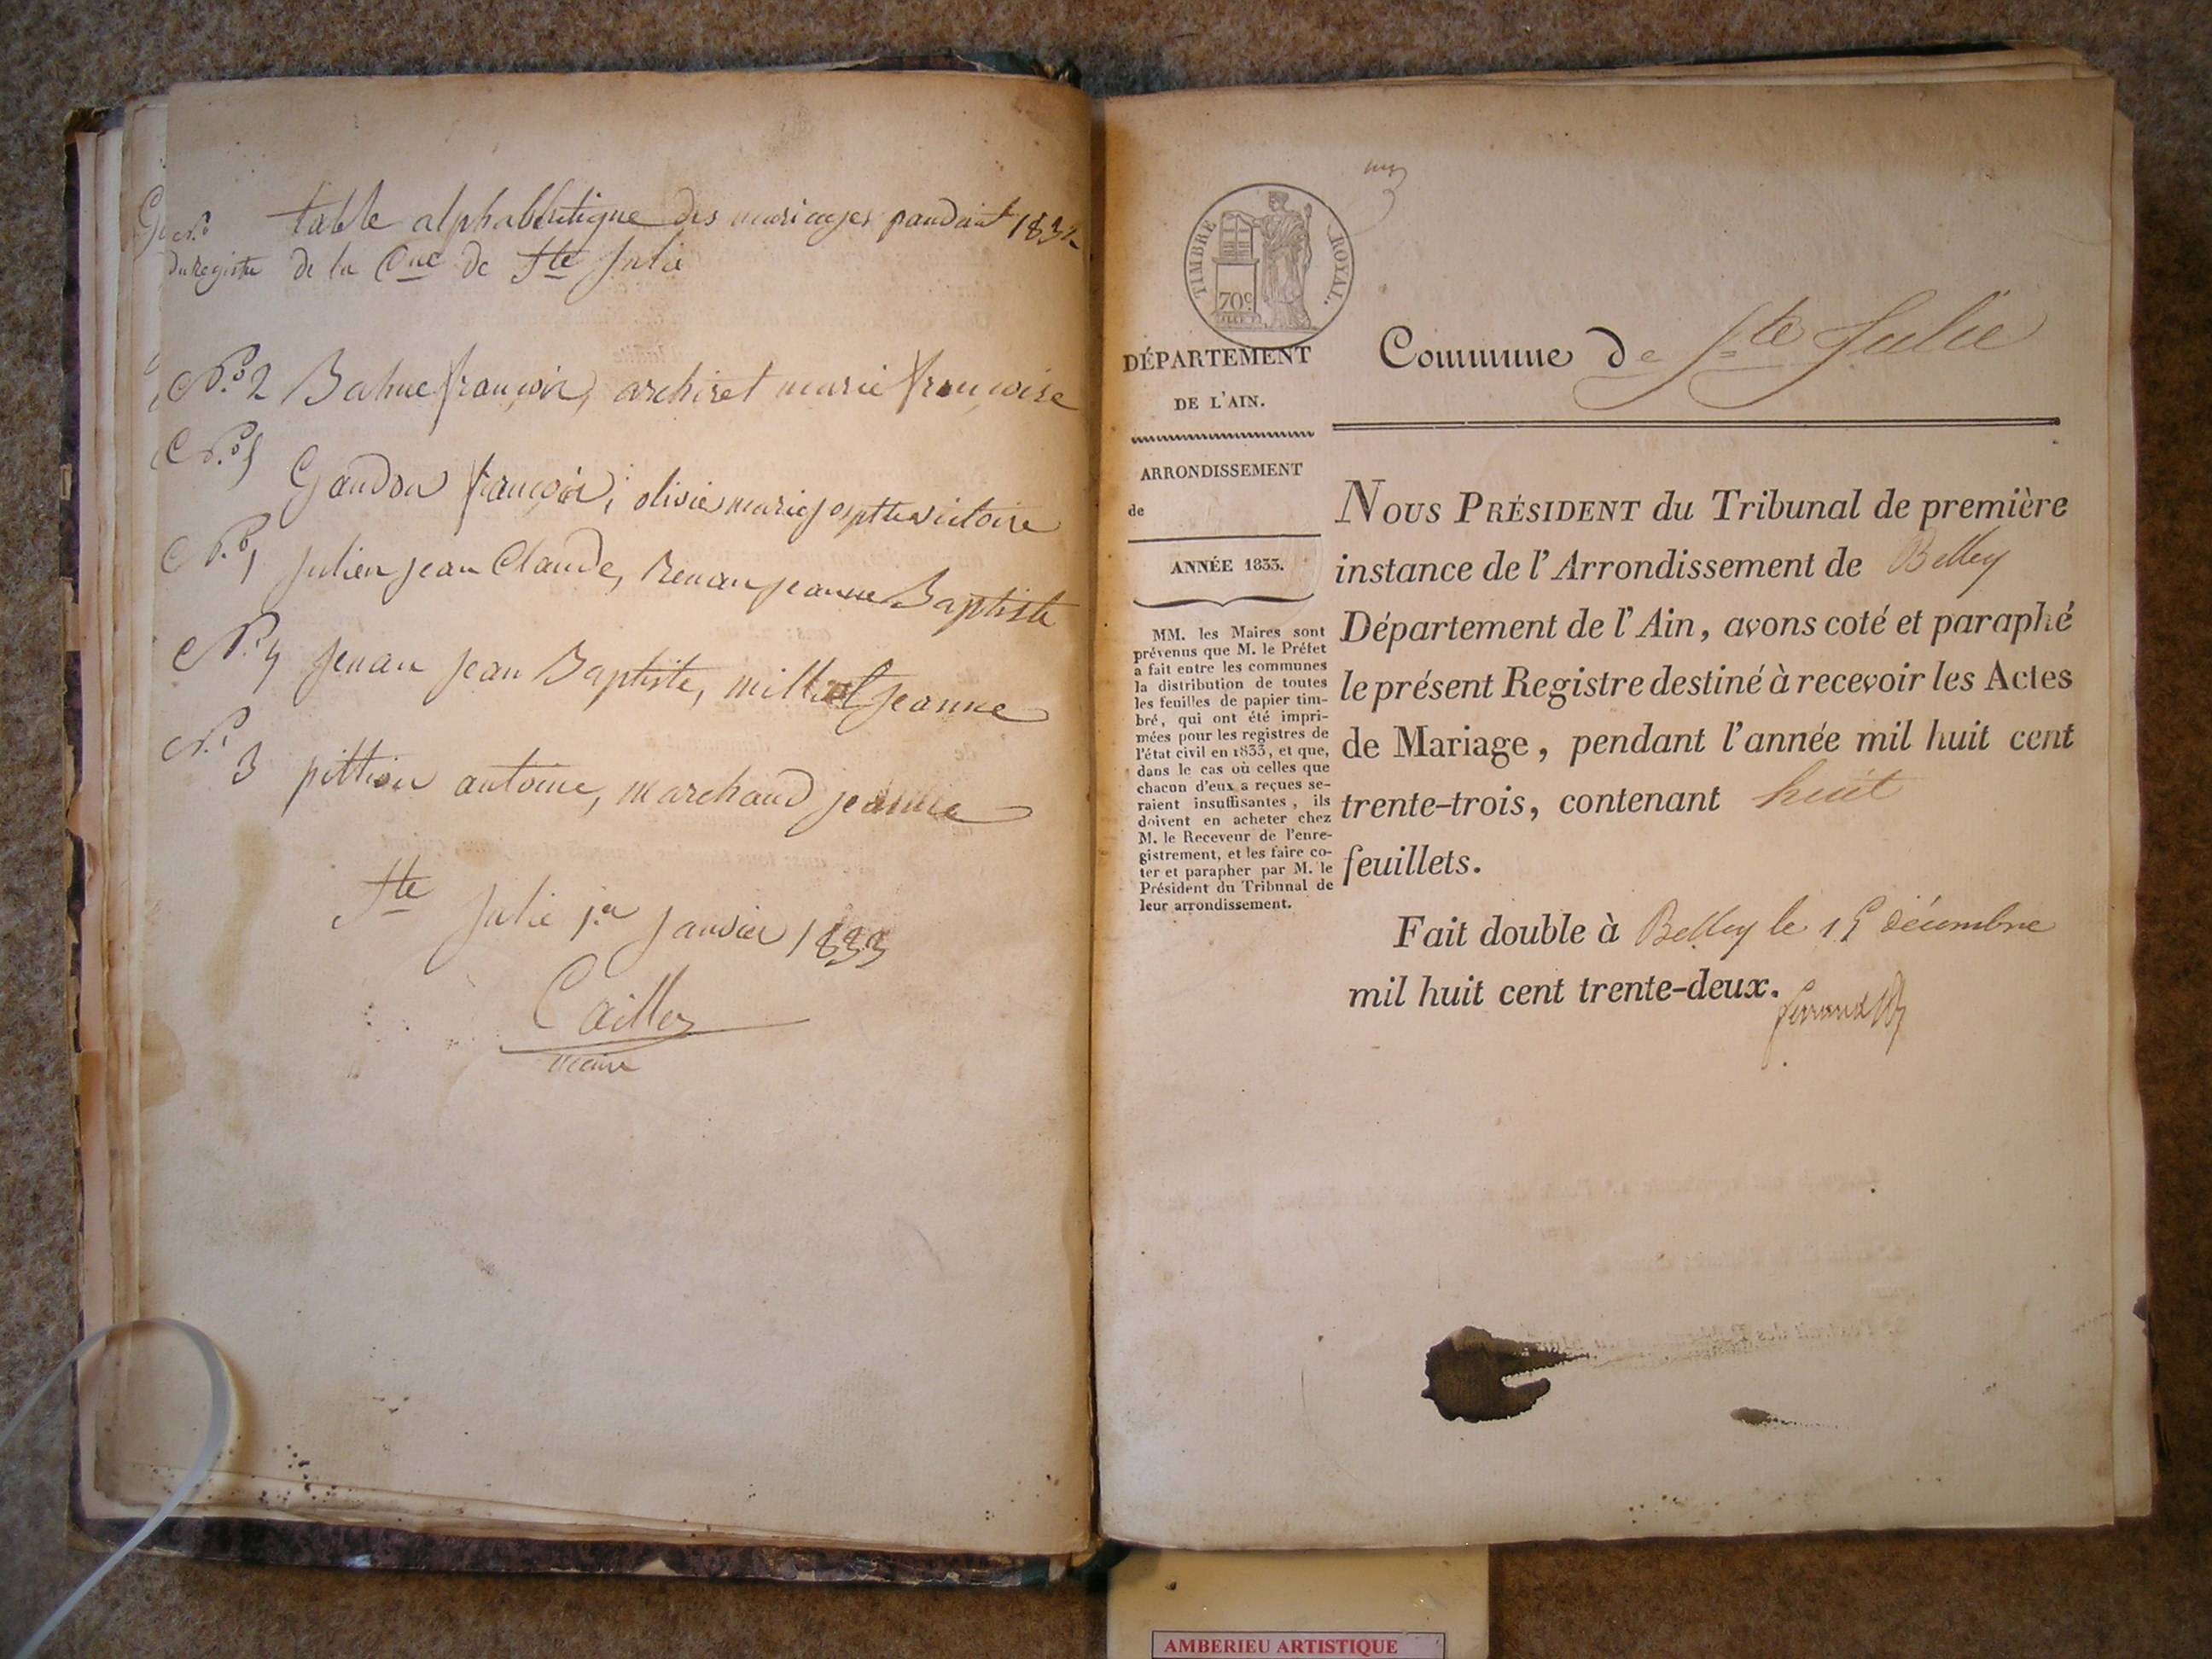 No table alphabétique des mariages pendant 1832
du registre de la Cne de Ste Julie
No 2 Bahue françois, archiret marie françoise
No 5
Gaudon françois, olivier marie josptte victoire
No 1 julien jean Claude, Renan jeanne Baptiste
No 4 jenan jean Baptiste, milliat jeanne
No 3 pittion antoine, marchand jeanne
Ste Julie 1er janvier 1833
Cailler
maire
TIMBRE ROYAL.
70c
DÉPARTEMENT
DE L'AIN.
ARRONDISSEMENT
de
ANNÉE 1833.
MM. les Maires sont
prévenus que M. le Préfet
a fait entre les communes
la distribution de toutes
les feuilles de papier tim-
bré, qui ont été impri-
mées pour les registres de
l'état civil en 1833, et que,
dans le cas où celles que
chacun d'eux a reçues se-
raient insuffisantes, ils
doivent en acheter chez
M. le Receveur de l'enre-
gistrement, et les faire co-
ter et parapher par M. le
Président du Tribunal de
leur arrondissement.
Commune de Ste Julie
NOUS PRÉSIDENT du Tribunal de première
instance de l'Arrondissement de Belley
Département de l'Ain, avons coté et paraphé
le présent Registre destiné à recevoir les Actes
de Mariage, pendant l'année mil huit cent
trente-trois, contenant huit
feuillets.
Fait double à Belley le 15 décembre
mil huit cent trente-deux.
AMBERIEU ARTISTIQUE